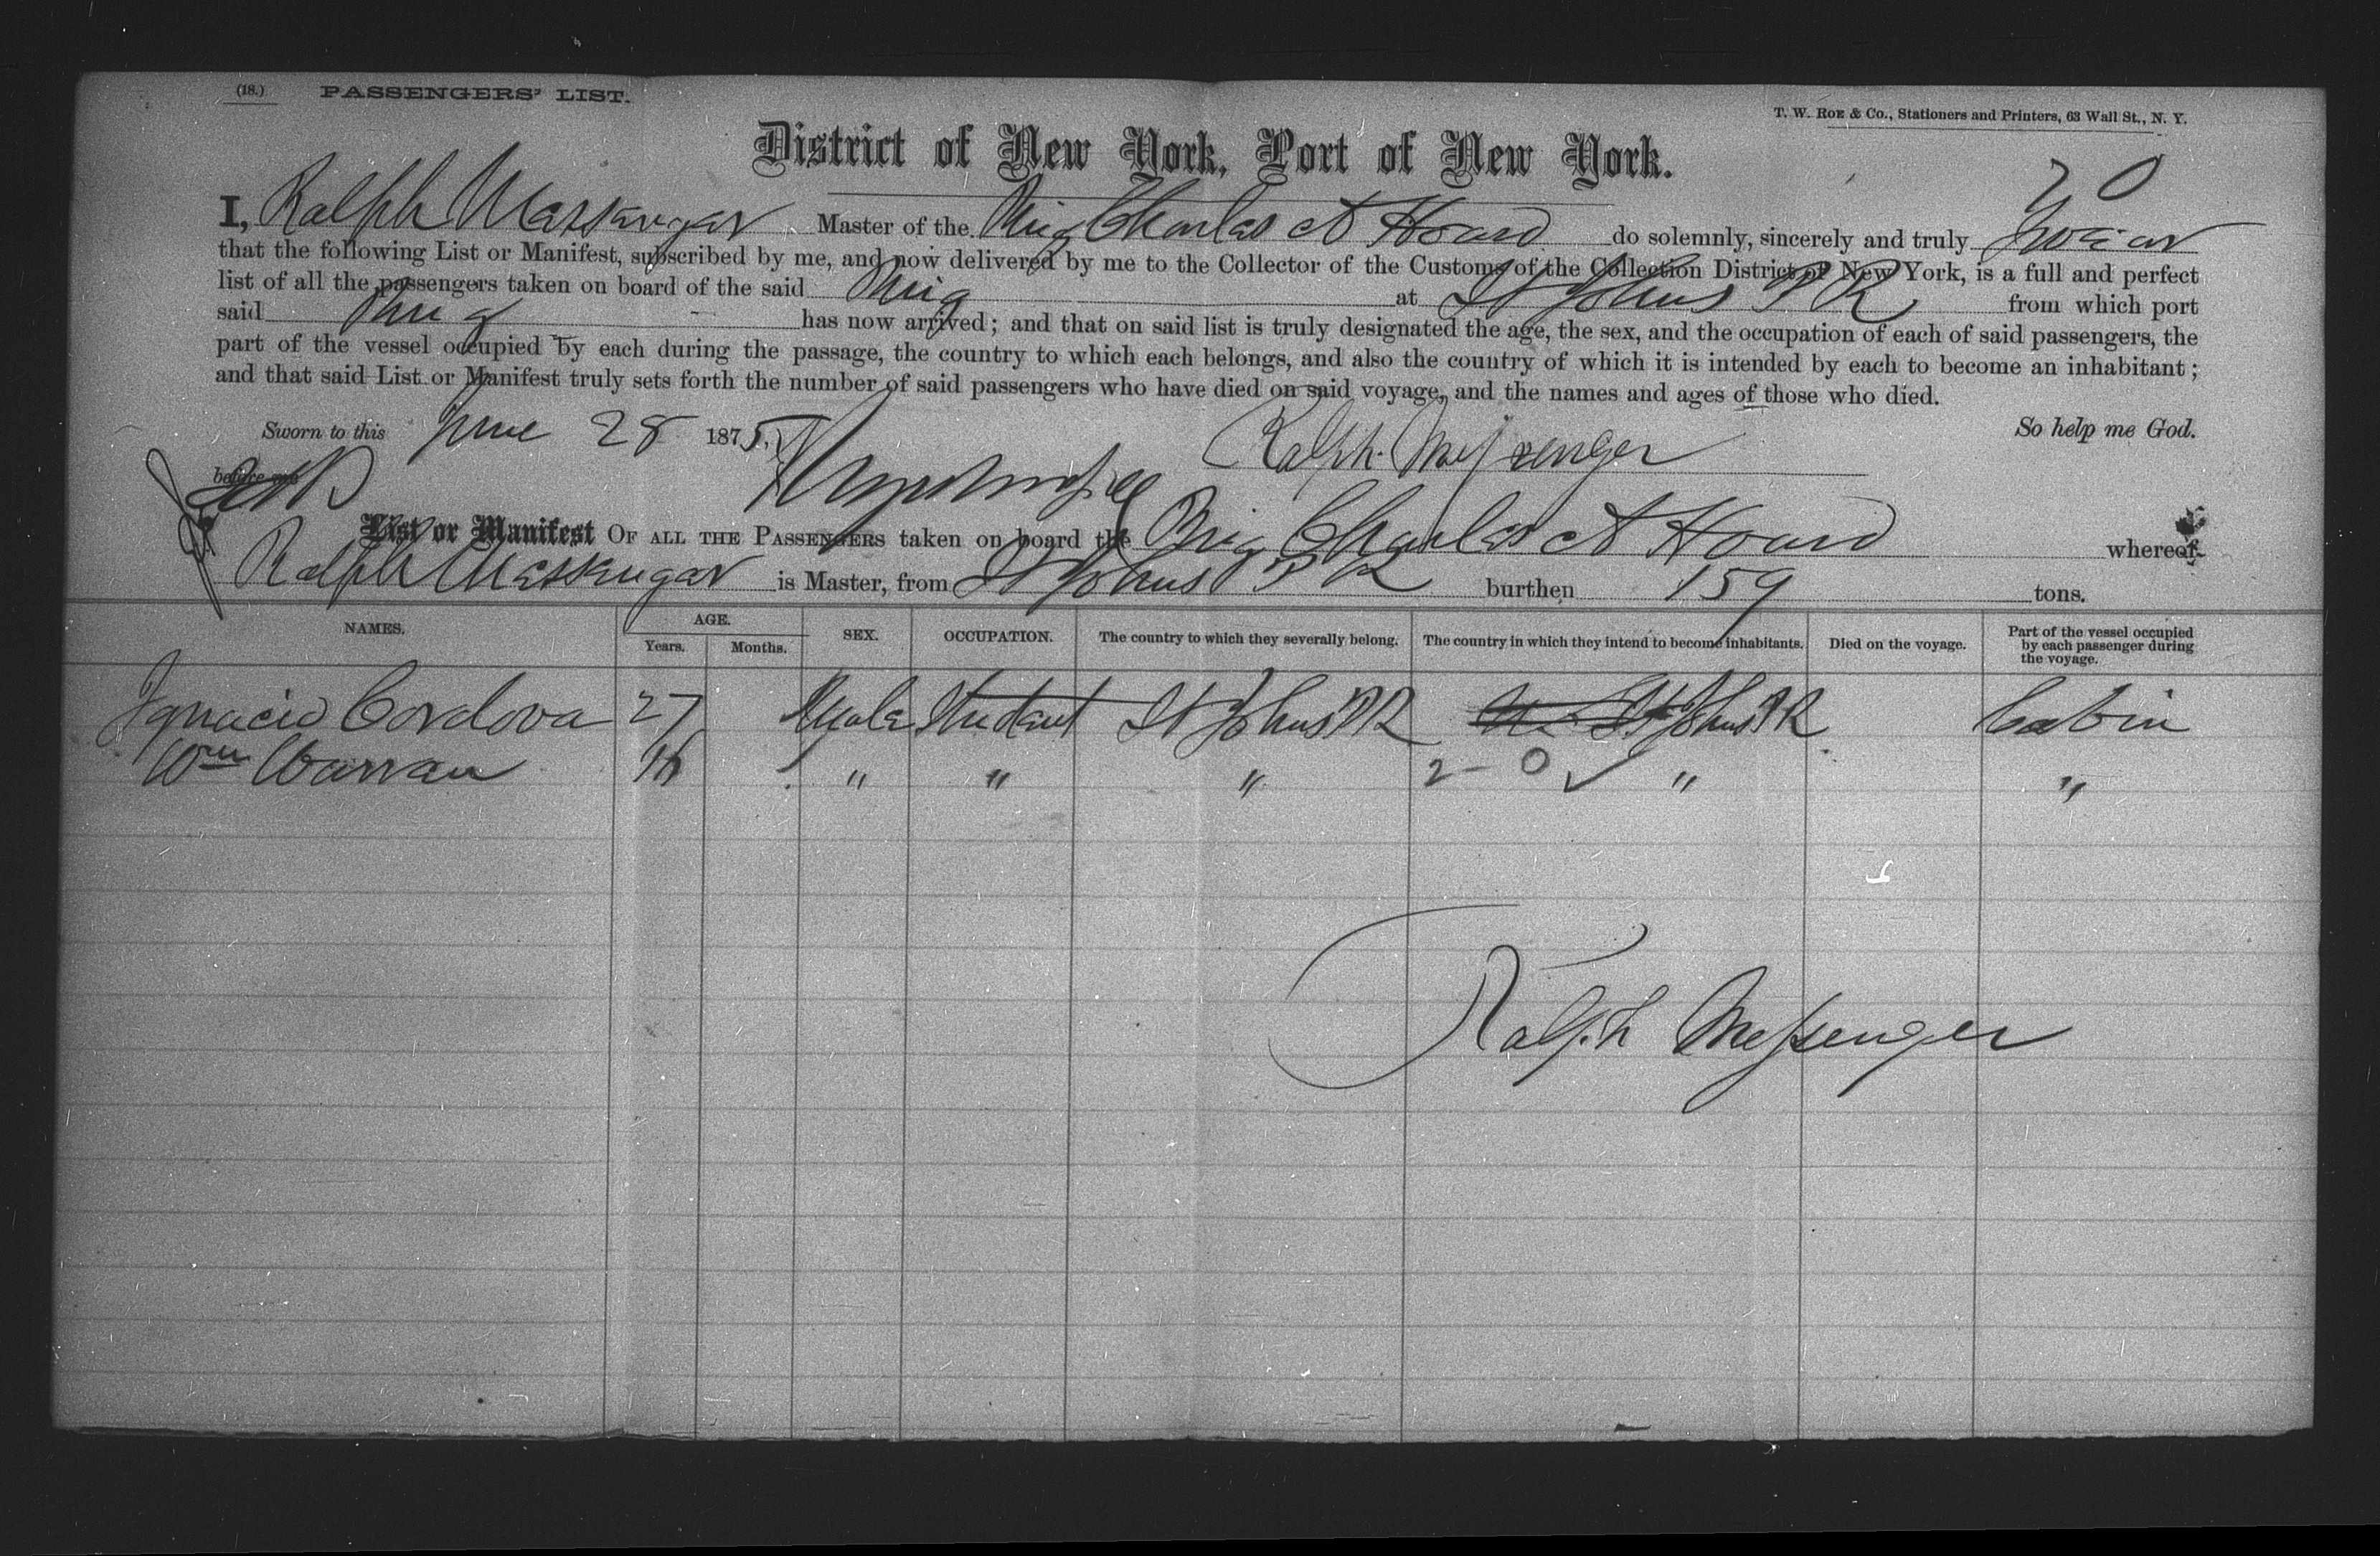 (18.) PASSENGERS' LIST.
T. W. ROE & Co., Stationers and Printers, 63 Wall St., N. Y.
District of New York, Port of New York.
70
I, Ralph Massengar Master of the Brig Charles A Hoard do solemnly, sincerely and truly Swear
that the following List or Manifest, subscribed by me, and now delivered by me to the Collector of the Customs of the Collection District of New York, is a full and perfect
list of all the passengers taken on board of the said Brig at St Johns P R from which port
said Brig has now arrived; and that on said list is truly designated the age, the sex, and the occupation of each of said passengers, the
part of the vessel occupied by each during the passage, the country to which each belongs, and also the country of which it is intended by each to become an inhabitant;
and that said List or Manifest truly sets forth the number of said passengers who have died on said voyage, and the names and ages of those who died.
Sworn to this June 28 1875, Ralph Messenger So help me God.
before me
List or Manifest OF ALL THE PASSENGERS taken on board the Brig Charles A Hoard whereof
Ralph Massengar is Master, from St Johns P R burthen 159 tons.
NAMES. AGE. Years. Months. SEX. OCCUPATION. The country to which they severally belong. The country in which they intend to become inhabitants. Died on the voyage. Part of the vessel occupied by each passenger during the voyage.
Ignacio Cordova 27 Male Student St Johns P R St Johns P R Cabin
Wm Warran 16 " " " 2 - 0 ✓ " "
Ralph Messenger